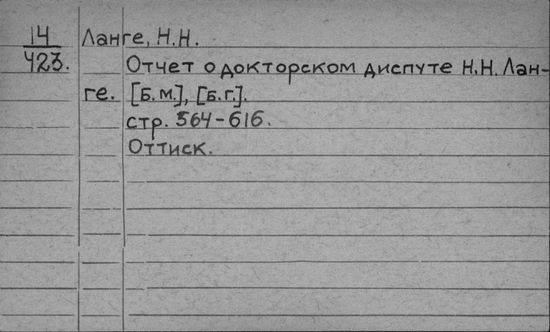 14 Ланге, Н.Н.
423. Отчет о докторском диспуте Н.Н. Лан-
ге. [Б.м.], [Б.г.].
стр. 564-616.
Оттиск.